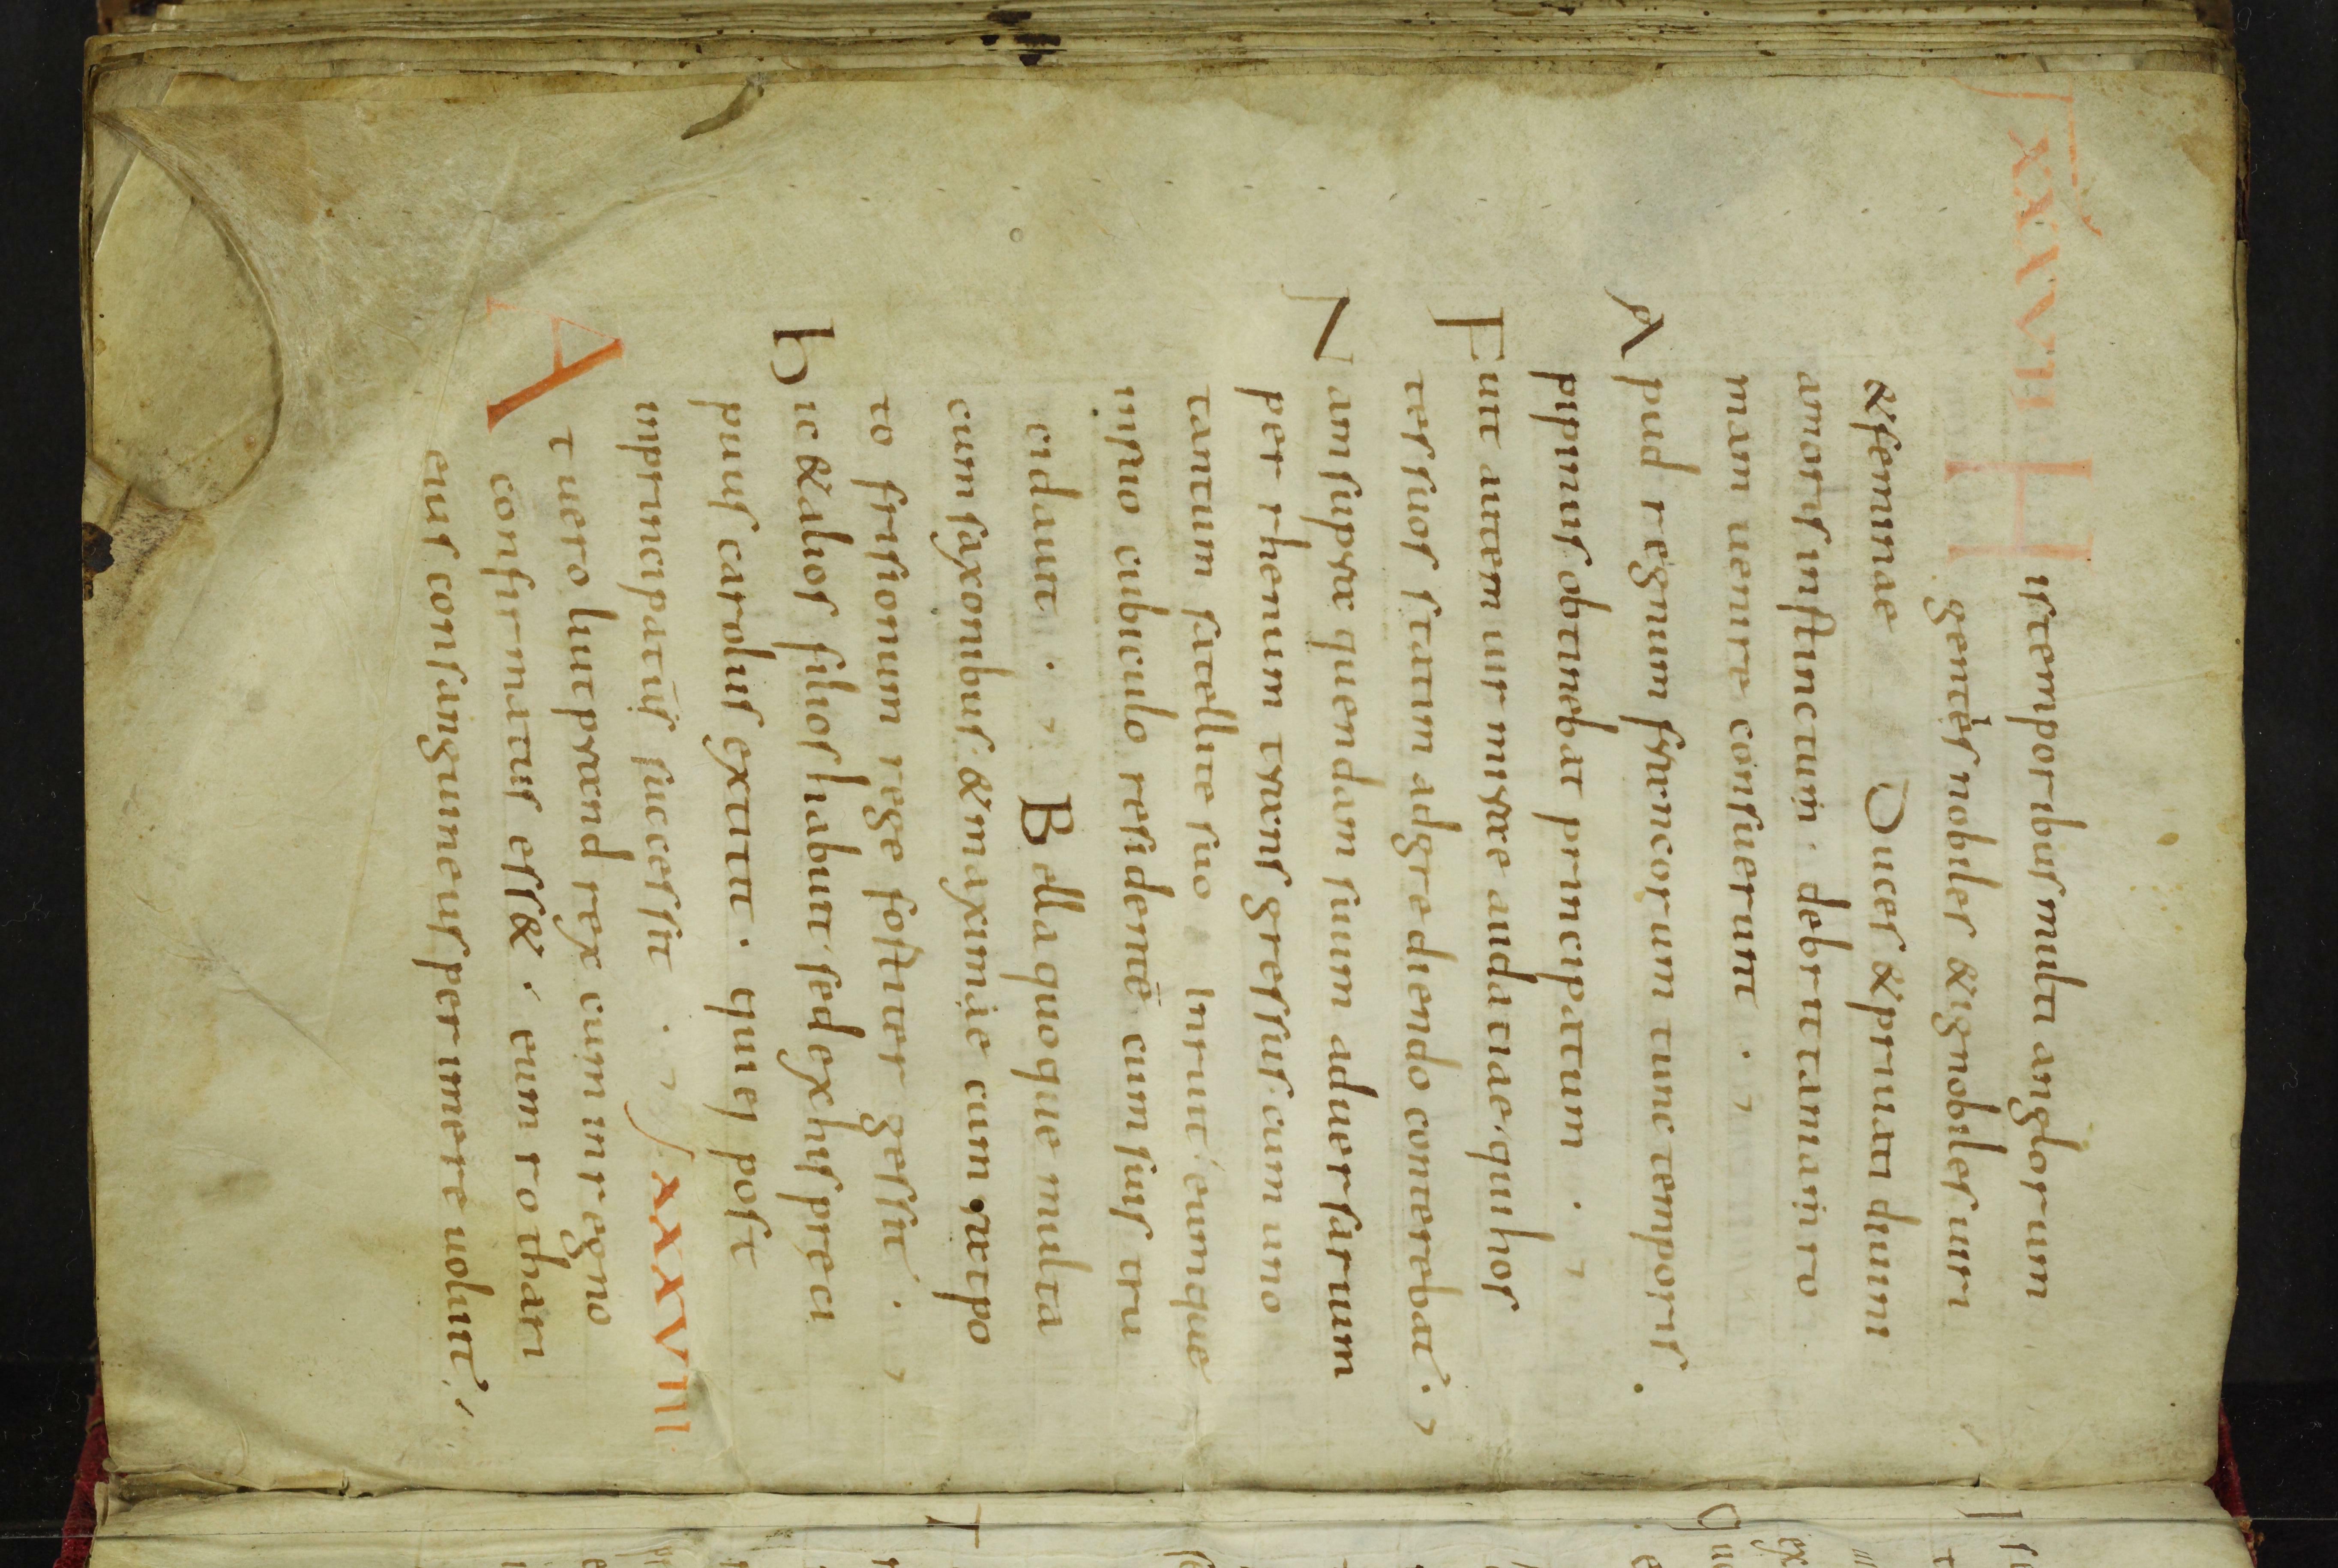 XXXVII
His temporibus multi anglorum
gentis nobiles & ignobiles uiri
& feminae Duces & priuati diuini
amoris instinctum . debrittaniam ro
mam uenire consuerunt . ,
Apud regnum francorum tunc temporis .
pipinus obtinebat principatum . ,
Fuit autem uir mirae audatiae quihos
tes suos statim adgrediendo conterebat . ,
Nam supra quendam suum aduersarium
per rhenum transgressus cum uno
tantum satellite suo Inruit eumque
insuo cubiculo residentē cum suis tru
cidauit . , Bella quoque multa
cum saxonibus & maxime cum ratpo
to frisionum rege fostiter gessit . ,
Hic & alios filios habuit sed exhis preci
puus carolus extitit . quiei post
inprincipatus successit . , XXXVIII
At uero liutprand rex cum inregno
confirmatus ess& , eum rothari
eius consanguineus perimere uoluit ,